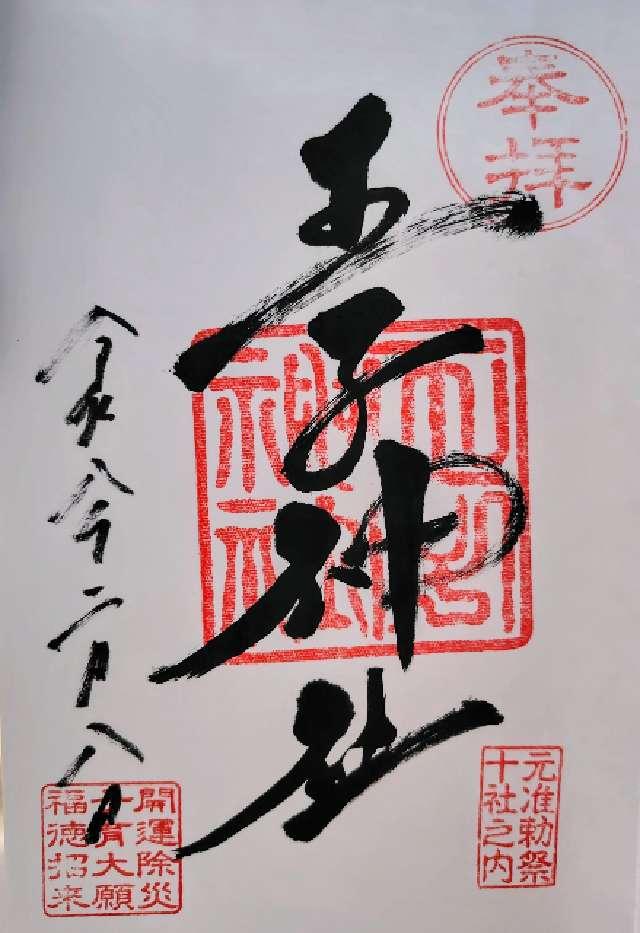 奉拝
王子神社
元准勅祭
十社之内
令和八年二月八日
開運除災
十有大願
福徳招来